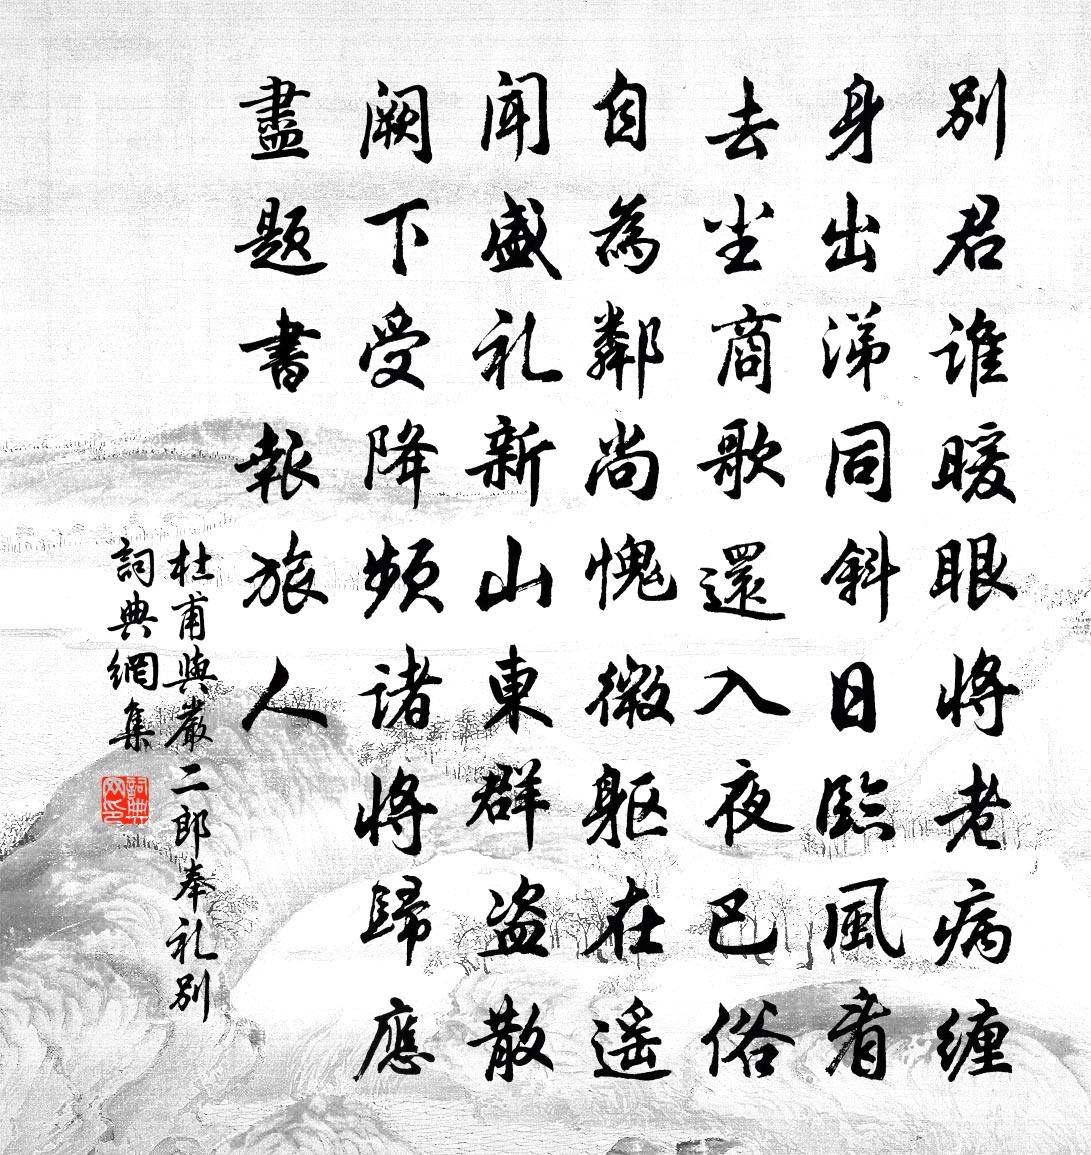 別君誰暖眼将老病纏
身出涕同斜日臨風看
去塵商歌還入夜巴俗
自為鄰尚愧微軀在遥
聞盛礼新山東群盗散
闕下受降頻諸将歸應
盡題書報旅人
杜甫與嚴二郎奉礼別
詞典網集
詞典网印